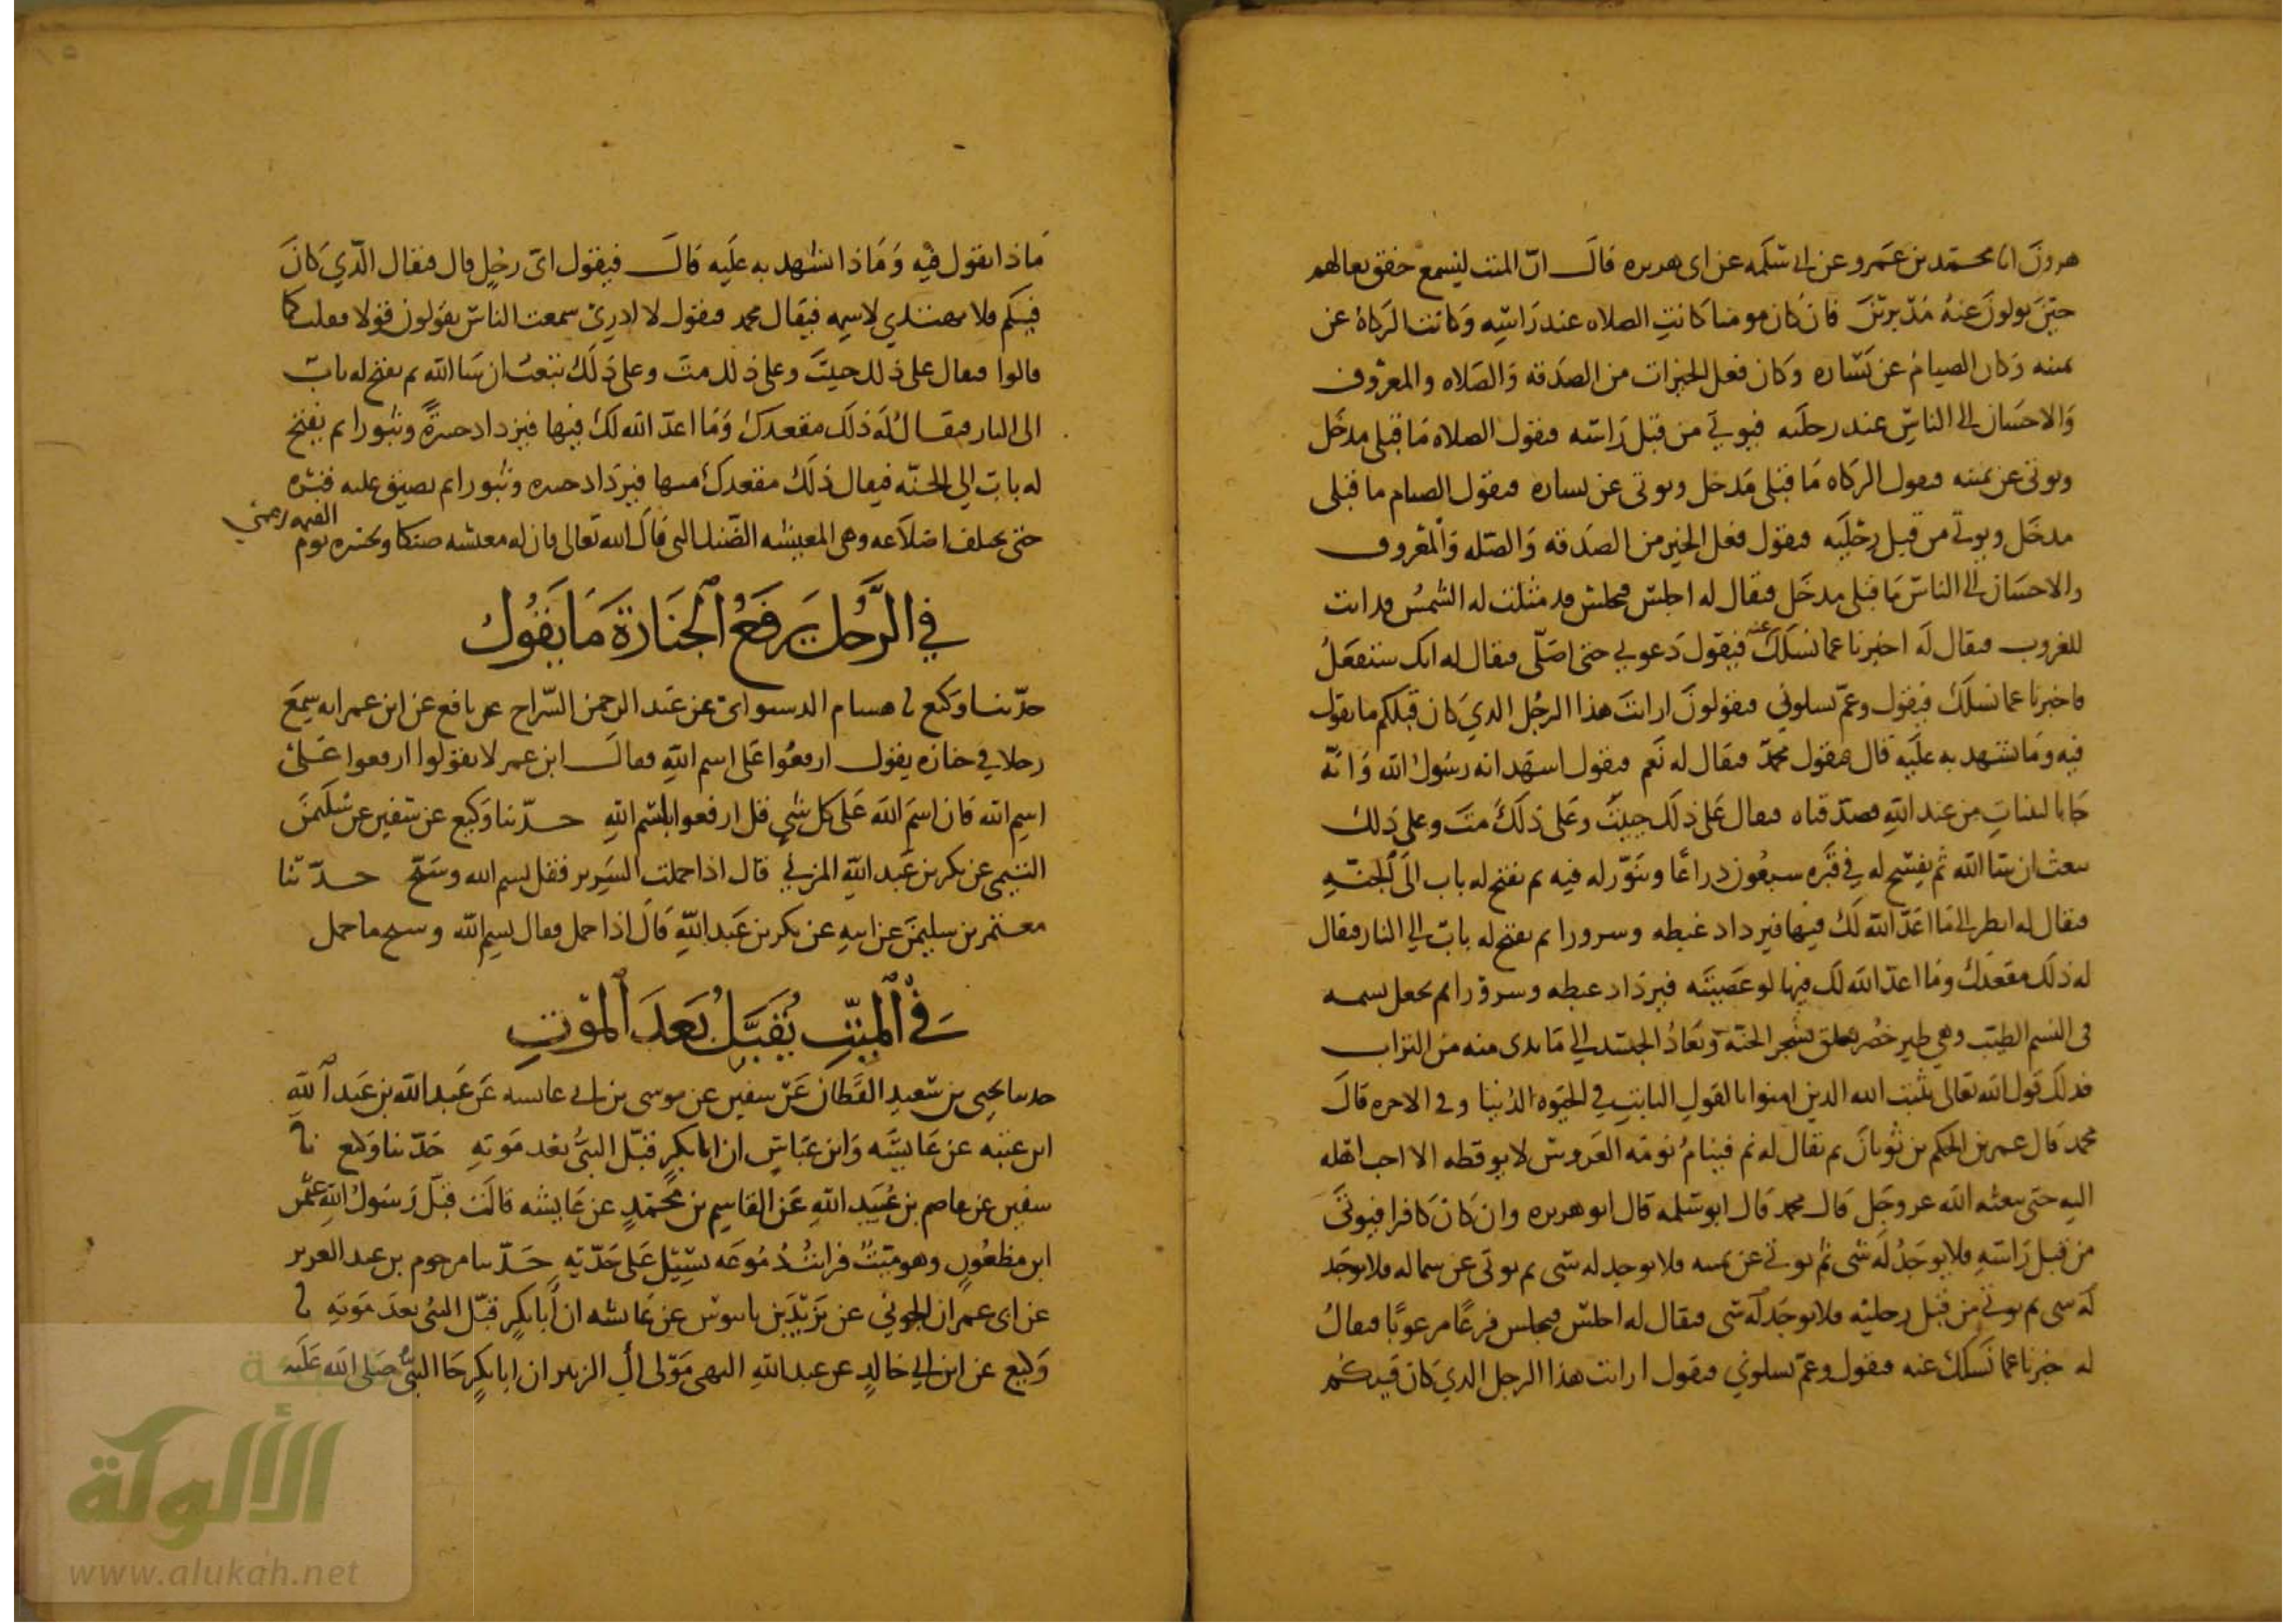 هرون انا محمد بن عمرو عن ابي سلمه عن ابي هريره قال ان الميت ليسمع خفق نعالهم
حين يولون عنه مُدْبرين فان كان مومنا كانت الصلاه عند راسه وكانت الزكاة عن
يمينه وكان الصيام عن يساره وكان فعل الخيرات من الصدقه والصلاه والمعروف
والاحسان الى الناس عند رجليه فيوتى من قبل راسه فيقول الصلاه ما قبلي مدخل
ويوتى عن يمينه فيقول الزكاه ما قبلي مدخل ويوتى عن يساره فيقول الصيام ما قبلي
مدخل ويوتى من قبل رجليه فيقول فعل الخير من الصدقه والصله والمعروف
والاحسان الى الناس ما قبلي مدخل فيقال له اجلس فيجلس قد مثلت له الشمس قد دانت
للغروب فيقال له اخبرنا عما نسلك عنه فيقول دعوني حتى اصلي فيقال له انك ستفعل
فاخبرنا عما نسلك فيقول وعم تسلوني فيقولون ارايت هذا الرجل الذي كان قبلكم ما تقول
فيه وما تشهد به عليه قال فيقول محمد فيقال له نعم فيقول اشهد انه رسول الله وانه
جانا بالبينات من عند الله فصدقناه فيقال على ذلك حييت وعلى ذلك مت وعلى ذلك
تبعث ان شا الله ثم يفسح له في قبره سبعون ذراعا وينور له فيه ثم يفتح له باب الى الجنه
فيقال له انظر الى ما اعد الله لك فيها فيزداد غبطه وسرورا ثم يفتح له باب الى النار فيقال
له ذلك مقعدك وما اعد الله لك فيها لو عصيته فيزداد غبطه وسرورا ثم يجعل نسمه
في النسم الطيب وهي طير خضر تعلق بشجر الجنة ويعاد الجسد الى ما بدى منه من التراب
فذلك قول الله تعالى يثبت الله الذين امنوا بالقول الثابت في الحيوه الدنيا وفي الاخره قال
محمد قال عمر بن الحكم بن ثوبان ثم يقال له نم فينام نومة العروس لا يوقظه الا احب اهله
اليه حتى يبعثه الله عز وجل قال محمد قال ابو سلمه قال ابو هريره وان كان كافرا فيوتى
من قبل راسه فلا يوجد له شى ثم يوتى عن يمينه فلا يوجد له شى ثم يوتى عن شماله فلا يوجد
له شى ثم يوتى من قبل رجليه فلا يوجد له شى فيقال له اجلس فيجلس فزعا مرعوبا فيقال
له خبرنا عما نسلك عنه فيقول وعم تسلوني فيقول ارايت هذا الرجل الذي كان فيكم
ماذا تقول فيه وماذا تشهد به عليه قال فيقول اي رجل قال فيقال الذي كان
فيكم فلا يهتدي لاسمه فيقال محمد فيقول لا ادري سمعت الناس يقولون قولا فقلت كما
قالوا فيقال على ذلك حييت وعلى ذلك مت وعلى ذلك تبعث ان شا الله ثم يفتح له باب
الى النار فيقال له ذلك مقعدك وما اعد الله لك فيها فيزداد حسرة وثبورا ثم يفتح
له باب الى الجنه فيقال ذلك مقعدك منها فيزداد حسره وثبورا ثم يضيق عليه قبره
حتى تختلف اضلاعه وهي المعيشه الضنك التي قال الله تعالى فان له معيشه ضنكا ونحشره يوم القيمه اعمى
في الرجل يرفع الجنازة ما يقول
حدثنا وكيع نا هشام الدستوائي عن عبد الرحمن السراج عن نافع عن ابن عمر انه سمع
رجلا في جنازه يقول ارفعوا على اسم الله فقال ابن عمر لا تقولوا ارفعوا على
اسم الله فان اسم الله على كل شي قل ارفعوا بسم الله حدثنا وكيع عن سفين عن سليمن
التيمي عن بكر بن عبد الله المزني قال اذا حملت السرير فقل بسم الله وسبح حدثنا
معتمر بن سليمن عن ابيه عن بكر بن عبد الله قال اذا حمل فقال بسم الله وسبح ما حمل
في الميت يقبل بعد الموت
حدثنا يحيى بن سعيد القطان عن سفين عن موسى بن ابي عائشه عن عبيد الله بن عبد الله
ابن عتبه عن عايشه وابن عباس ان ابا بكر قبل النبي بعد موته حدثنا وكيع نا
سفين عن عاصم بن عبيد الله عن القاسم بن محمد عن عايشه قالت قبل رسول الله عثمن
ابن مظعون وهو ميت فرايت دموعه تسيل على خديه حدثنا مرحوم بن عبد العزيز
عن ابي عمران الجوني عن يزيد بن بابنوس عن عايشه ان ابا بكر قبل النبي بعد موته نا
وكيع عن ابن ابي خالد عن عبد الله البهي مولى ال الزبير ان ابا بكر جا النبي صلى الله عليه
الألوكة
www.alukah.net